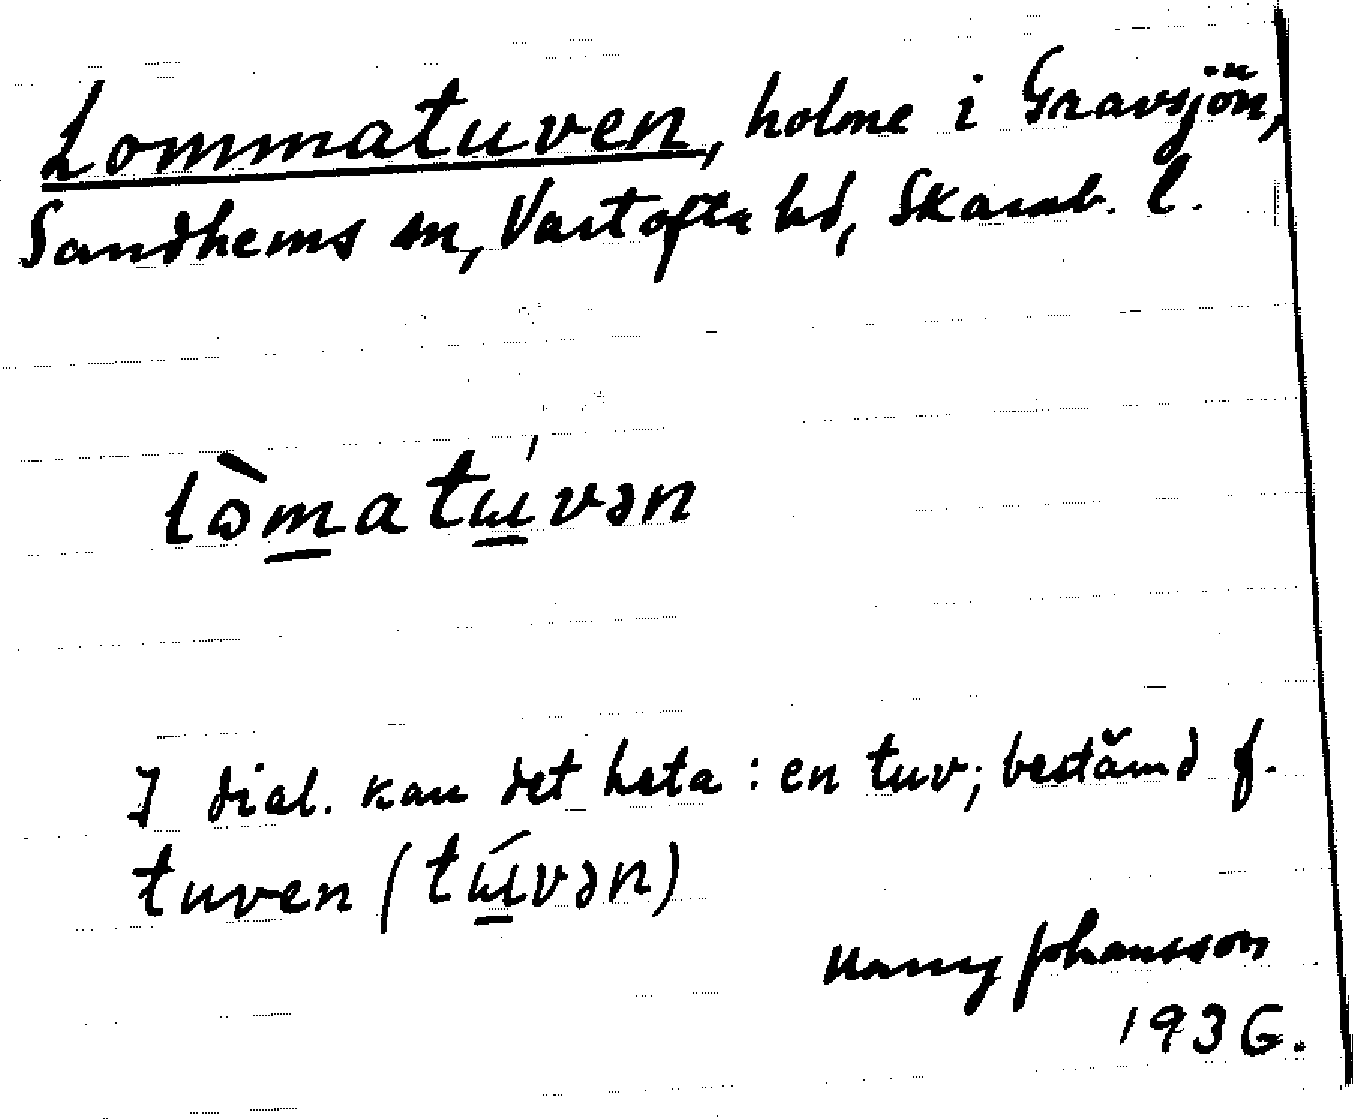 Lommatuven, holme i Gravsjön,
Sandhems sn, Vartofta hd, Skarab. l.
lòmatɯ́vən
I dial. kan det heta : en tuv; bestämd f.
tuven (tɯ́vən)
Harry Johansson
1936.